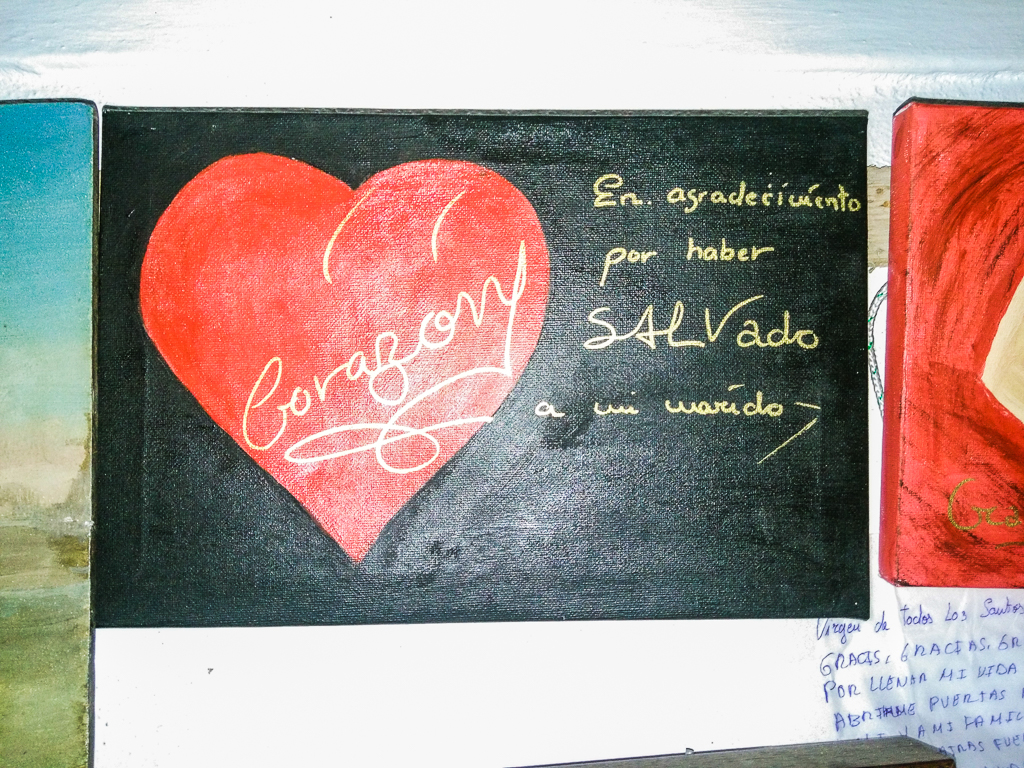 Corazón
En agradecimiento
por haber
SALVado
a mi marido
Virgen de todos Los Santos
GRACIS, GRACIAS, GR
POR LLENAR MI VIDA
ABRIRME PUERTAS
A MI FAMIL